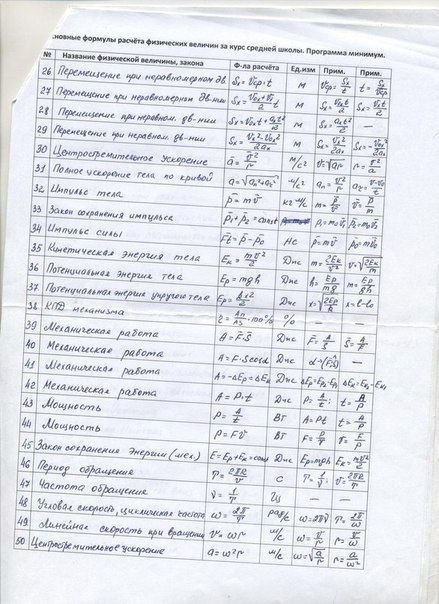 новные формулы расчёта физических величин за курс средней школы. Программа минимум.
№ Название физической величины, закона Ф-ла расчёта Ед.изм Прим. Прим.
26 Перемещение при неравномерном дв. Sx = Vср·t м Vср = Sx/t t = Sx/Vср
27 Перемещение при неравномерном дв-нии Sx = (Vox+Vx)/2·t м Sx = Vxt/2 Sx = Voxt/2
28 Перемещение при неравном. дв-нии Sx = Voxt + axt²/2 м Sx = axt²/2 —
29 Перемещение при неравном. дв-нии Sx = (Vx²-Vox²)/2ax м Sx = Vx²/2ax Sx = -Vox²/2ax
30 Центростремительное ускорение a = v²/r м/с² v = √ar r = v²/a
31 Полное ускорение тела по кривой a = √(aп²+aτ²) м/с² aп = v²/r aτ = (v-vo)/t
32 Импульс тела p̄ = mv̄ кг·м/с m = p/v v̄ = p̄/m
33 Закон сохранения импульса p̄1 + p̄2 = const
34 Импульс силы F̄t = p̄ - p̄o Нс p̄ = mv̄ p̄o = mv̄o
35 Кинетическая энергия тела Eк = mv²/2 Дж m = 2Eк/v² v = √(2Eк/m)
36 Потенциальная энергия тела Ep = mgh Дж h = Ep/mg m = Ep/gh
37 Потенциальная энергия упругого тела Ep = kx²/2 Дж x = √(2Ep/k) x = l-lo
38 КПД механизма Aп/Aз·100% % — —
39 Механическая работа A = F·S Дж F = A/S S = A/F
40 Механическая работа A = F·S cosα Дж α→(F̄;S̄)
41 Механическая работа A = -ΔEp = ΔEк Дж ΔEp = Ep2-Ep1 ΔEк = Eк2-Eк1
42 Механическая работа A = P·t Дж P = A/t t = A/P
43 Мощность P = A/t Вт A = Pt t = A/P
44 Мощность P = Fv̄ Вт F = P/v v = P/F
45 Закон сохранения энергии (мех.) E = Ep + Eк = const Дж Ep = mgh Eк = mv²/2
46 Период обращения T = 2πR/v с T = 1/ν v = 2πR/T
47 Частота обращения ν = 1/T Гц — —
48 Угловая скорость, циклическая частота ω = 2π/T рад/с ω = 2πν T = 2π/ω
49 Линейная скорость при вращении v = ωr м/с ω = v/r r = v/ω
50 Центростремительное ускорение a = ω²r м/с ω = √(a/r) r = a/ω²